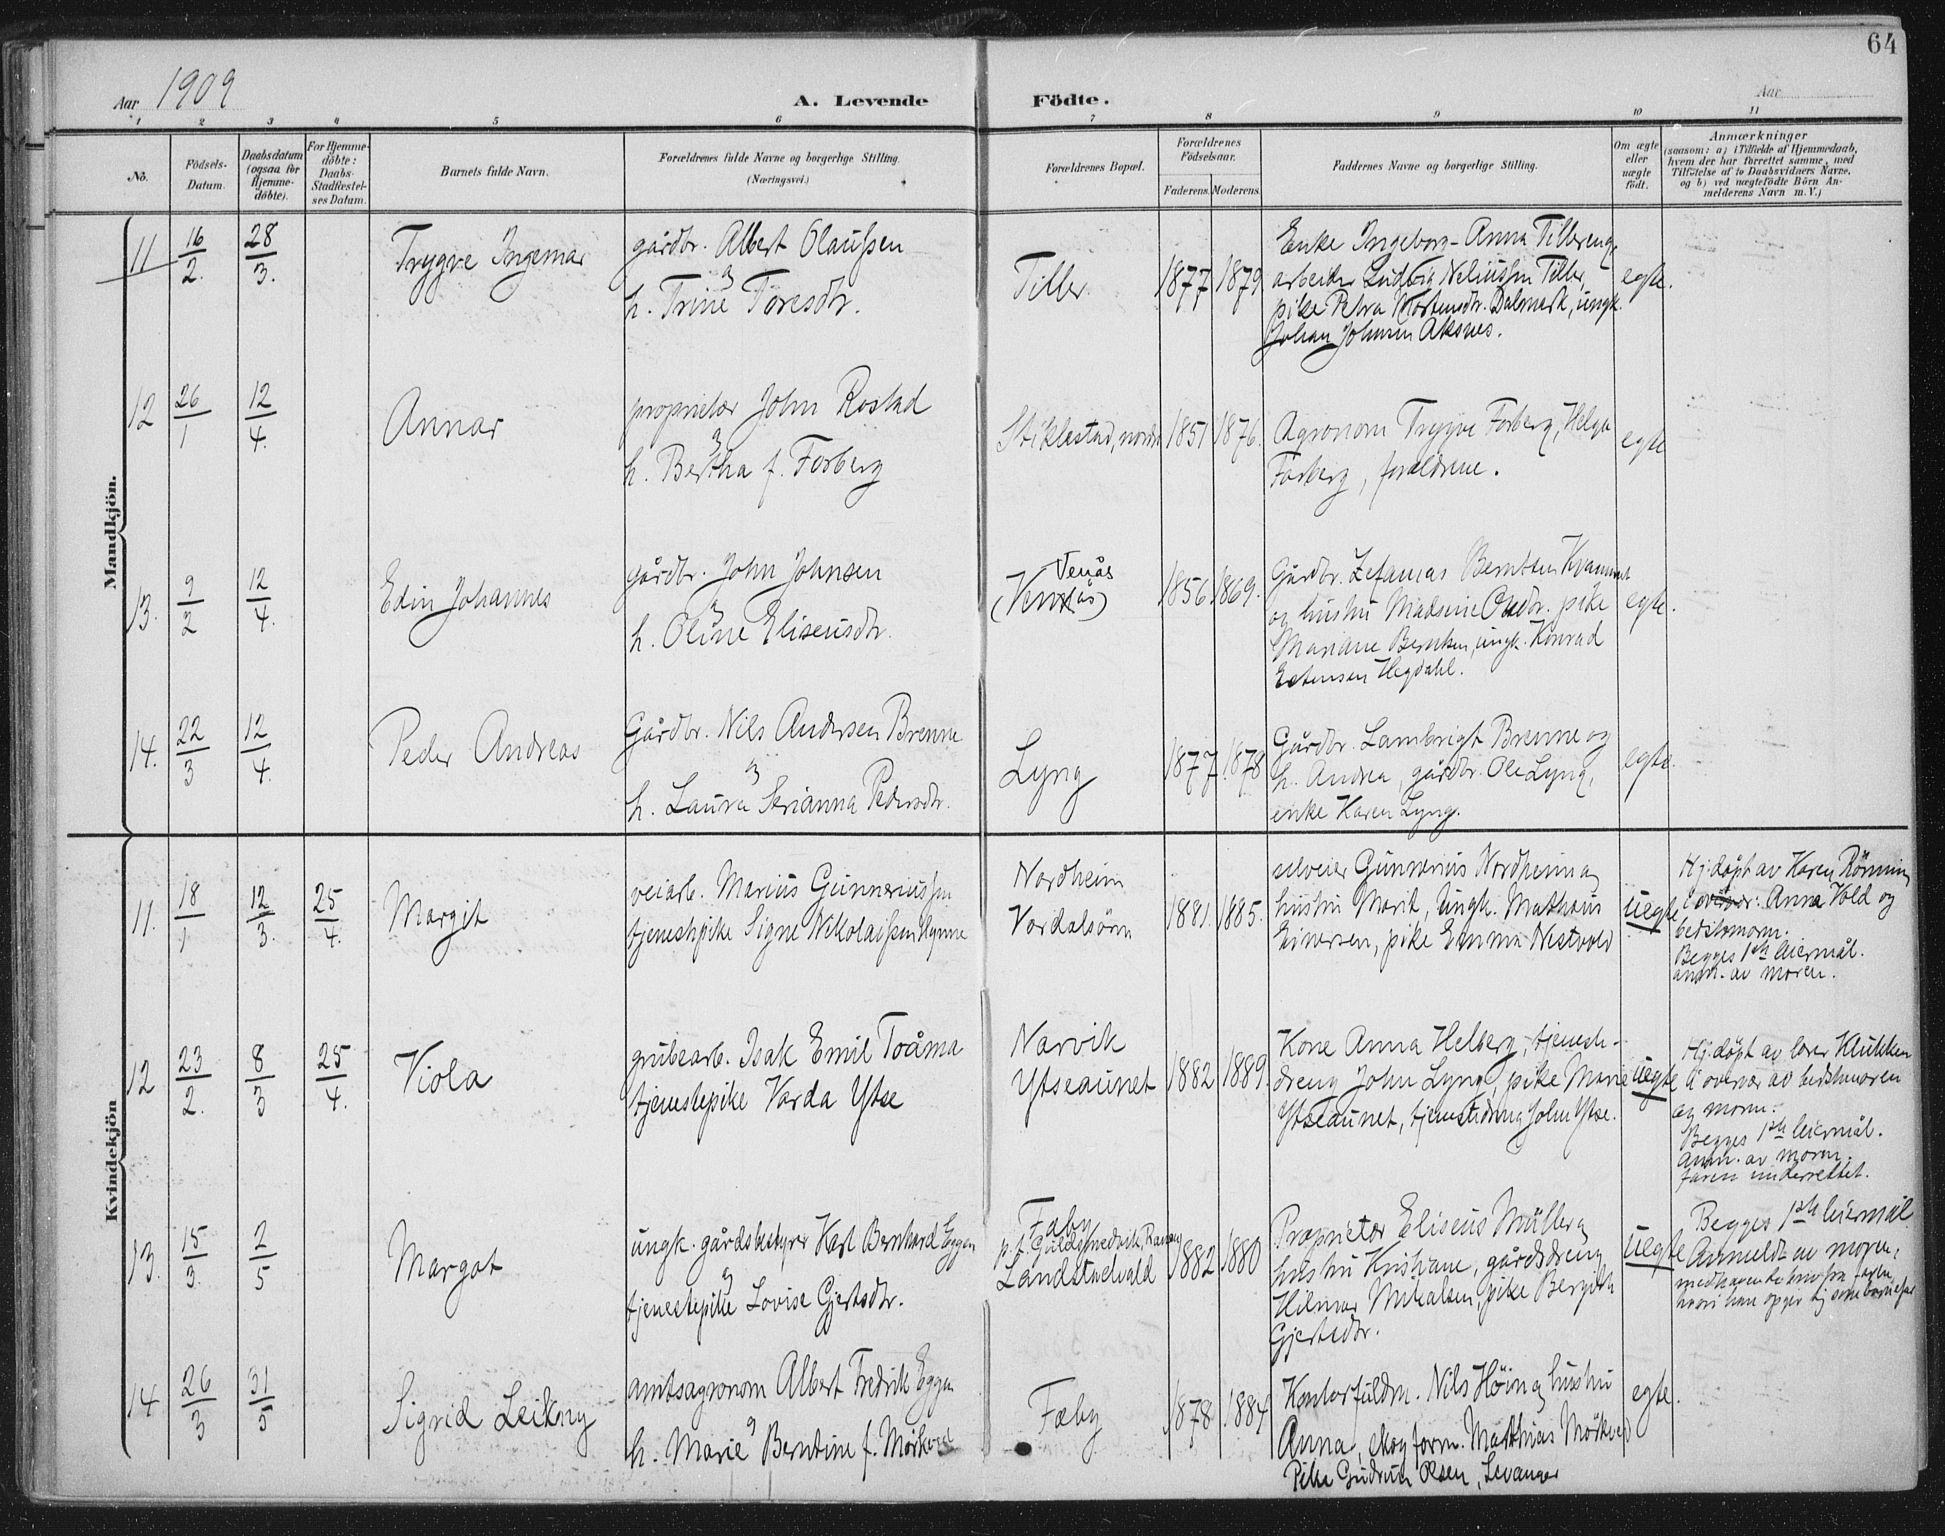 64
Aar 1909
A. Levende Födte.
Aar
1 2 3 4 5 6 7 8 9 10 11
No.
Födsels-
Datum.
Daabsdatum
(ogsaa for
Hjemme-
döbte).
For Hjemme-
döbte:
Daabs-
Stadfæstel-
ses Datum.
Barnets fulde Navn.
Forældrenes fulde Navne og borgerlige Stilling.
(Næringsvei.)
Forældrenes Bopæl.
Forældrenes
Födselsaar.
Faderens. Moderens.
Faddernes Navne og borgerlige Stilling.
Om ægte
eller
uægte
født.
Anmærkninger
(saasom: a) i Tilfælde af Hjemmedaab,
hvem der har forrettet samme, med
Tilföielse af to Daabsvidners Navne,
og b) ved uægtefödte Börn An-
melderens Navn m. V.)
Mandkjön.
11 16/2. 28/3.
Trygve Ingemar
gårdbr. Albert Olaussen
h. Trine Toresdr.
Tiller
1877 1879
Enke Ingeborg-Anna Tillereng,
arbeider Ludvig Neliussen Tiller,
pike Petra Mortensdr. Dalemark, ungk.
Johan Johnsen Aksnes.
egte.
12 26/1 12/4.
Annar
proprietær John Rostad
&
h. Bertha f. Forberg
Stiklestad, nordre
1851 1876.
Agronom Trygve Forberg, Helga
Forberg, forældrene.
egte
13. 9/2 12/4.
Edin Johannes
gårdbr. John Johnsen
h. Oline Eliseusdr.
Venås
1856 1869.
Gårdbr. Zefanias Berntsen Kvammet
og hustru Madsine Olsdr. pike
Mariane Berntsen, ungk. Konrad
Estensen Hegdahl.
egte.
14. 22/3 12/4.
Peder Andreas
Gårdbr. Nils Andersen Brenne
&
h. Laura Serianna Pedersdr.
Lyng
1877 1878
Gårdbr. Lambrigt Brenne og
h. Andrea, gårdbr. Ole Lyng,
enke Karen Lyng.
egte.
Kvindekjön
11. 18/1 12/3. 25/4.
Margit
veiarb. Marius Gunneriussen
tjenestpike Signe Nikolaissen Hynne
Nordheim
Værdalsören
1881. 1885.
selveier Gunnerius Nordheim og
hustru Marit, ungk. Matthæus
Einersen, pike Emma Nestvold
uegte
Hj.døpt av Karen Rönning
i overvær: Anna Vold og
bedstemoren.
Begges 1ste leiermål.
anm. av moren.
12 23/2. 8/3 25/4.
Viola
grubearb. Isak Emil Toåma
tjenestepike Varda Ytse
Narvik
Ytseaunet
1882 1889.
Kone Anna Helberg, tjeneste-
dreng John Lyng, pike Marie
Ytseaunet, tjenestedreng John Ytse.
uegte
Hj.døpt av lærer Klukken
i overvær av bedstemoren
og moren.
Begges 1ste leiermål.
Anm. av moren.
faren underrettet.
13. 15/3. 2/5
Margot
ungk. gårdsbestyrer Karl Bernhard Eggen
&
tjenestepike Lovise Gjertsdr.
Fæby
Landstadvald
1882 1880
Proprietær Eliseus Müller og
hustru Kristiane, gårdsdreng
Hilmar Mikalsen, pike Bergith
Gjertsdr.
uegte
Begges 1ste leiermål
Anmeldt av moren,
medhavende brev fra faren,
hvori han opgir sig som barnefar
14 26/3 31/5
Sigrid Leikny
amtsagronom Albert Fredrik Eggen
&
h. Marie Berntine f. Mörkved
Fæby
1878 1884
Kontorfuldm. Nils Höin og hustru
Anna, skogform. Matthias Mörkved
Pike Gudrun Olsen, Levanger
egte.